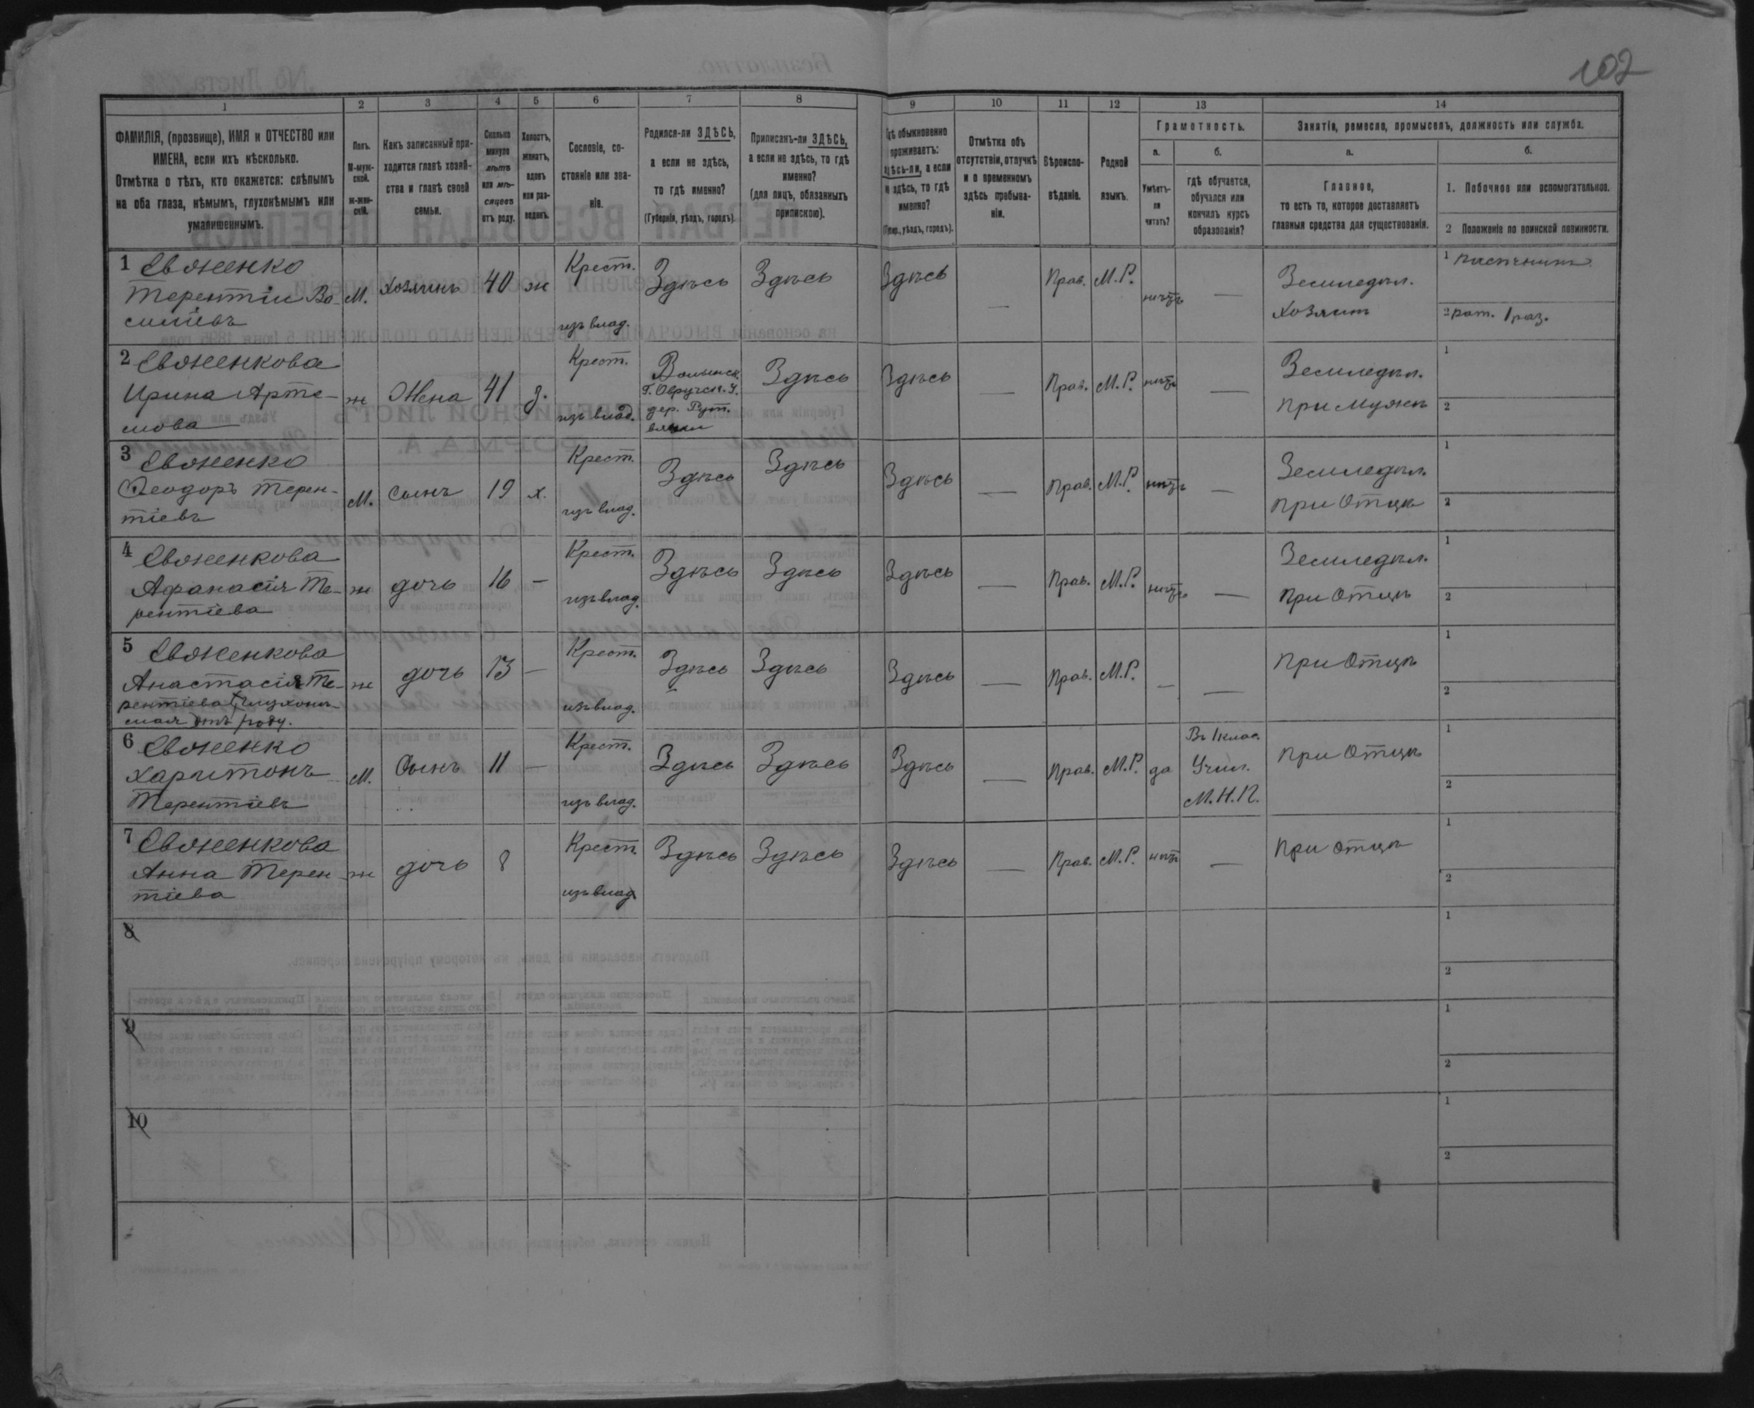 102
1 2 3 4 5 6 7 8 9 10 11 12 13 14
ФАМИЛІЯ, (прозвище), ИМЯ и ОТЧЕСТВО или
ИМЕНА, если ихъ нѣсколько.
Отмѣтка о тѣхъ, кто окажется: слѣпымъ
на оба глаза, нѣмымъ, глухонѣмымъ или
умалишеннымъ.
Полъ.
М-муж-
ской.
Ж-жен-
скій.
Какъ записанный при-
ходится главѣ хозяй-
ства и главѣ своей
семьи.
Сколько
минуло
лѣтъ
или мѣ-
сяцевъ
отъ роду.
Холостъ,
женатъ,
вдовъ
или раз-
веденъ.
Сословіе, со-
стояніе или зва-
ніе.
Родился-ли ЗДѢСЬ,
а если не здѣсь,
то гдѣ именно?
(Губернія, уѣздъ, городъ).
Приписанъ-ли ЗДѢСЬ,
а если не здѣсь, то гдѣ
именно?
(для лицъ, обязанныхъ
припискою).
Гдѣ обыкновенно
проживаетъ:
здѣсь-ли, а если
не здѣсь, то гдѣ
именно?
(Губ., уѣздъ, городъ).
Отмѣтка объ
отсутствіи, отлучкѣ
и о временномъ
здѣсь пребыва-
ніи.
Вѣроиспо-
вѣданіе.
Родной
языкъ.
Грамотность.
а.
Умѣетъ-
ли
читать?
б.
гдѣ обучается,
обучался или
кончилъ курсъ
образованія?
Занятіе, ремесло, промыселъ, должность или служба.
а.
Главное,
то есть то, которое доставляетъ
главныя средства для существованія.
б.
1. Побочное или вспомогательное.
2 Положеніе по воинской повинности.
1 Евженко
Терентій Ва-
силіевъ
М. хозяинъ 40 ж
Крест.
изъ влад.
Здѣсь Здѣсь Здѣсь — Прав. М.Р. нѣтъ —
Земледѣл.
Хозяин
1 пасѣчникъ
2 рат. 1 раз.
2 Евженкова
Ирина Арте-
мова
ж Жена 41 з.
Крест.
изъ влад.
Волынск.
Г. Овручск. У.
дер.
Здѣсь Здѣсь — Прав. М.Р. нѣтъ —
Земледѣл.
при мужѣ
1
2
3 Евженко
Ѳеодоръ Терен-
тіевъ
М. сынъ 19 х.
Крест.
изъ влад.
Здѣсь Здѣсь Здѣсь — Прав. М.Р. нѣтъ —
Земледѣл.
при Отцѣ
1
2
4 Евженкова
Афанасія Те-
рентіева
ж дочь 16 —
Крест.
изъ влад.
Здѣсь Здѣсь Здѣсь — Прав. М.Р. нѣтъ —
Земледѣл.
при Отцѣ
1
2
5 Евженкова
Анастасія Те-
рентіева глухонѣ-
мая отъ роду.
ж дочь 13 —
Крест.
изъ влад.
Здѣсь Здѣсь Здѣсь — Прав. М.Р. — —
при Отцѣ
1
2
6 Евженко
Харитонъ
Терентіевъ
М. Сынъ 11 —
Крест.
изъ влад.
Здѣсь Здѣсь Здѣсь — Прав. М.Р. да
Въ 1 клас.
Учил.
М.Н.П.
при Отцѣ
1
2
7 Евженкова
Анна Терен-
тіева
ж дочь 8
Крест.
изъ влад.
Здѣсь Здѣсь Здѣсь — Прав. М.Р. нѣтъ —
при отцѣ
1
2
8
1
2
9
1
2
10
1
2